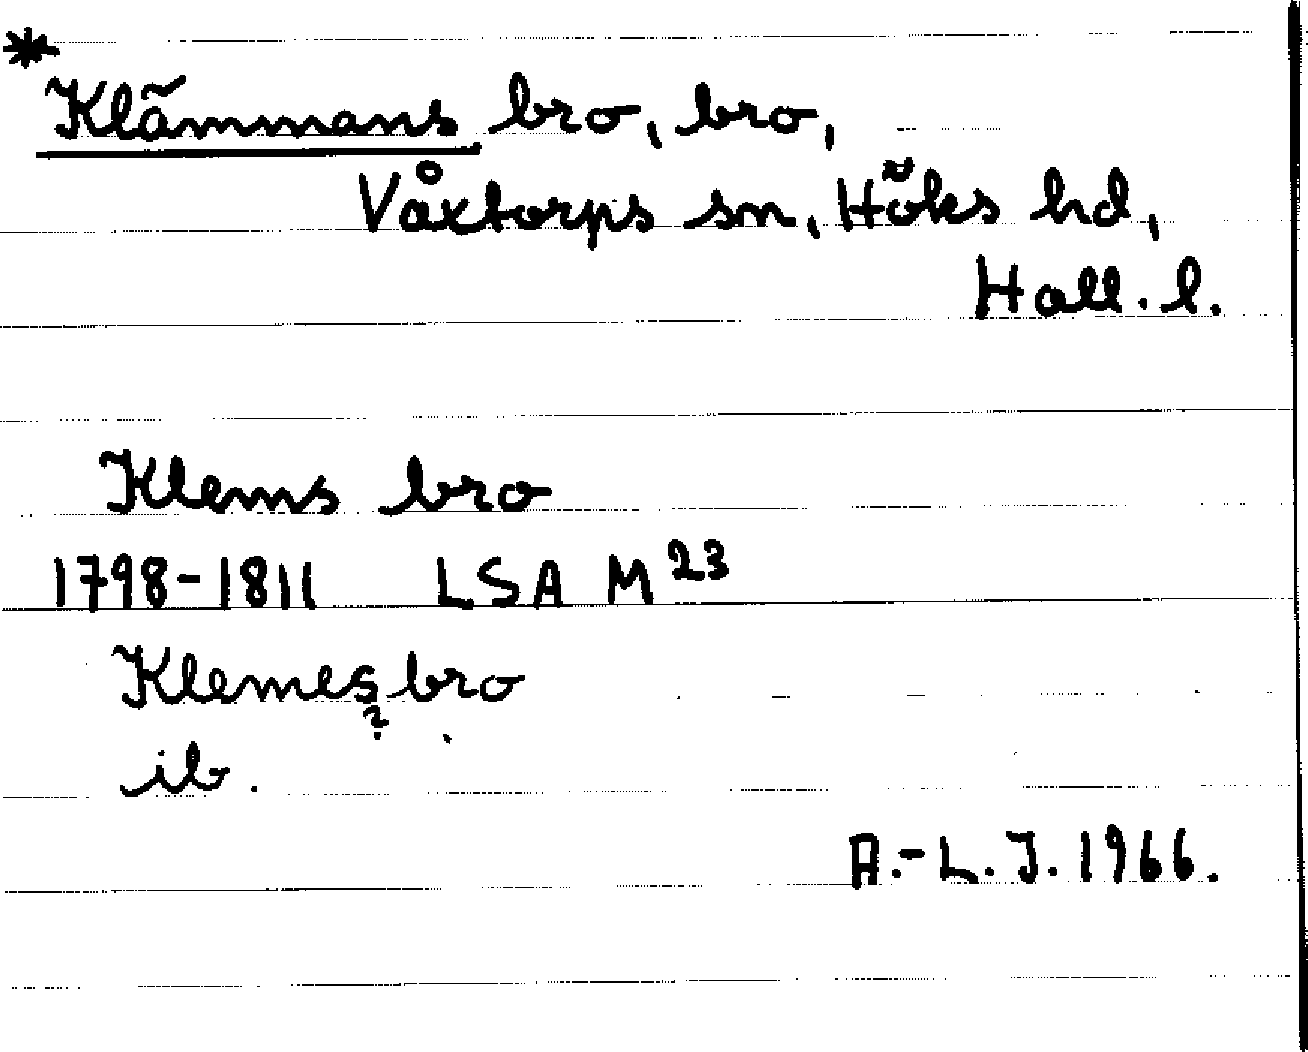 * Klämmans bro, bro,
Våxtorps sn, Höks hd,
Hall. l.
Klems bro
1798-1811 LSA M 23
Klemes bro
?
ib.
A.-L. J. 1966.